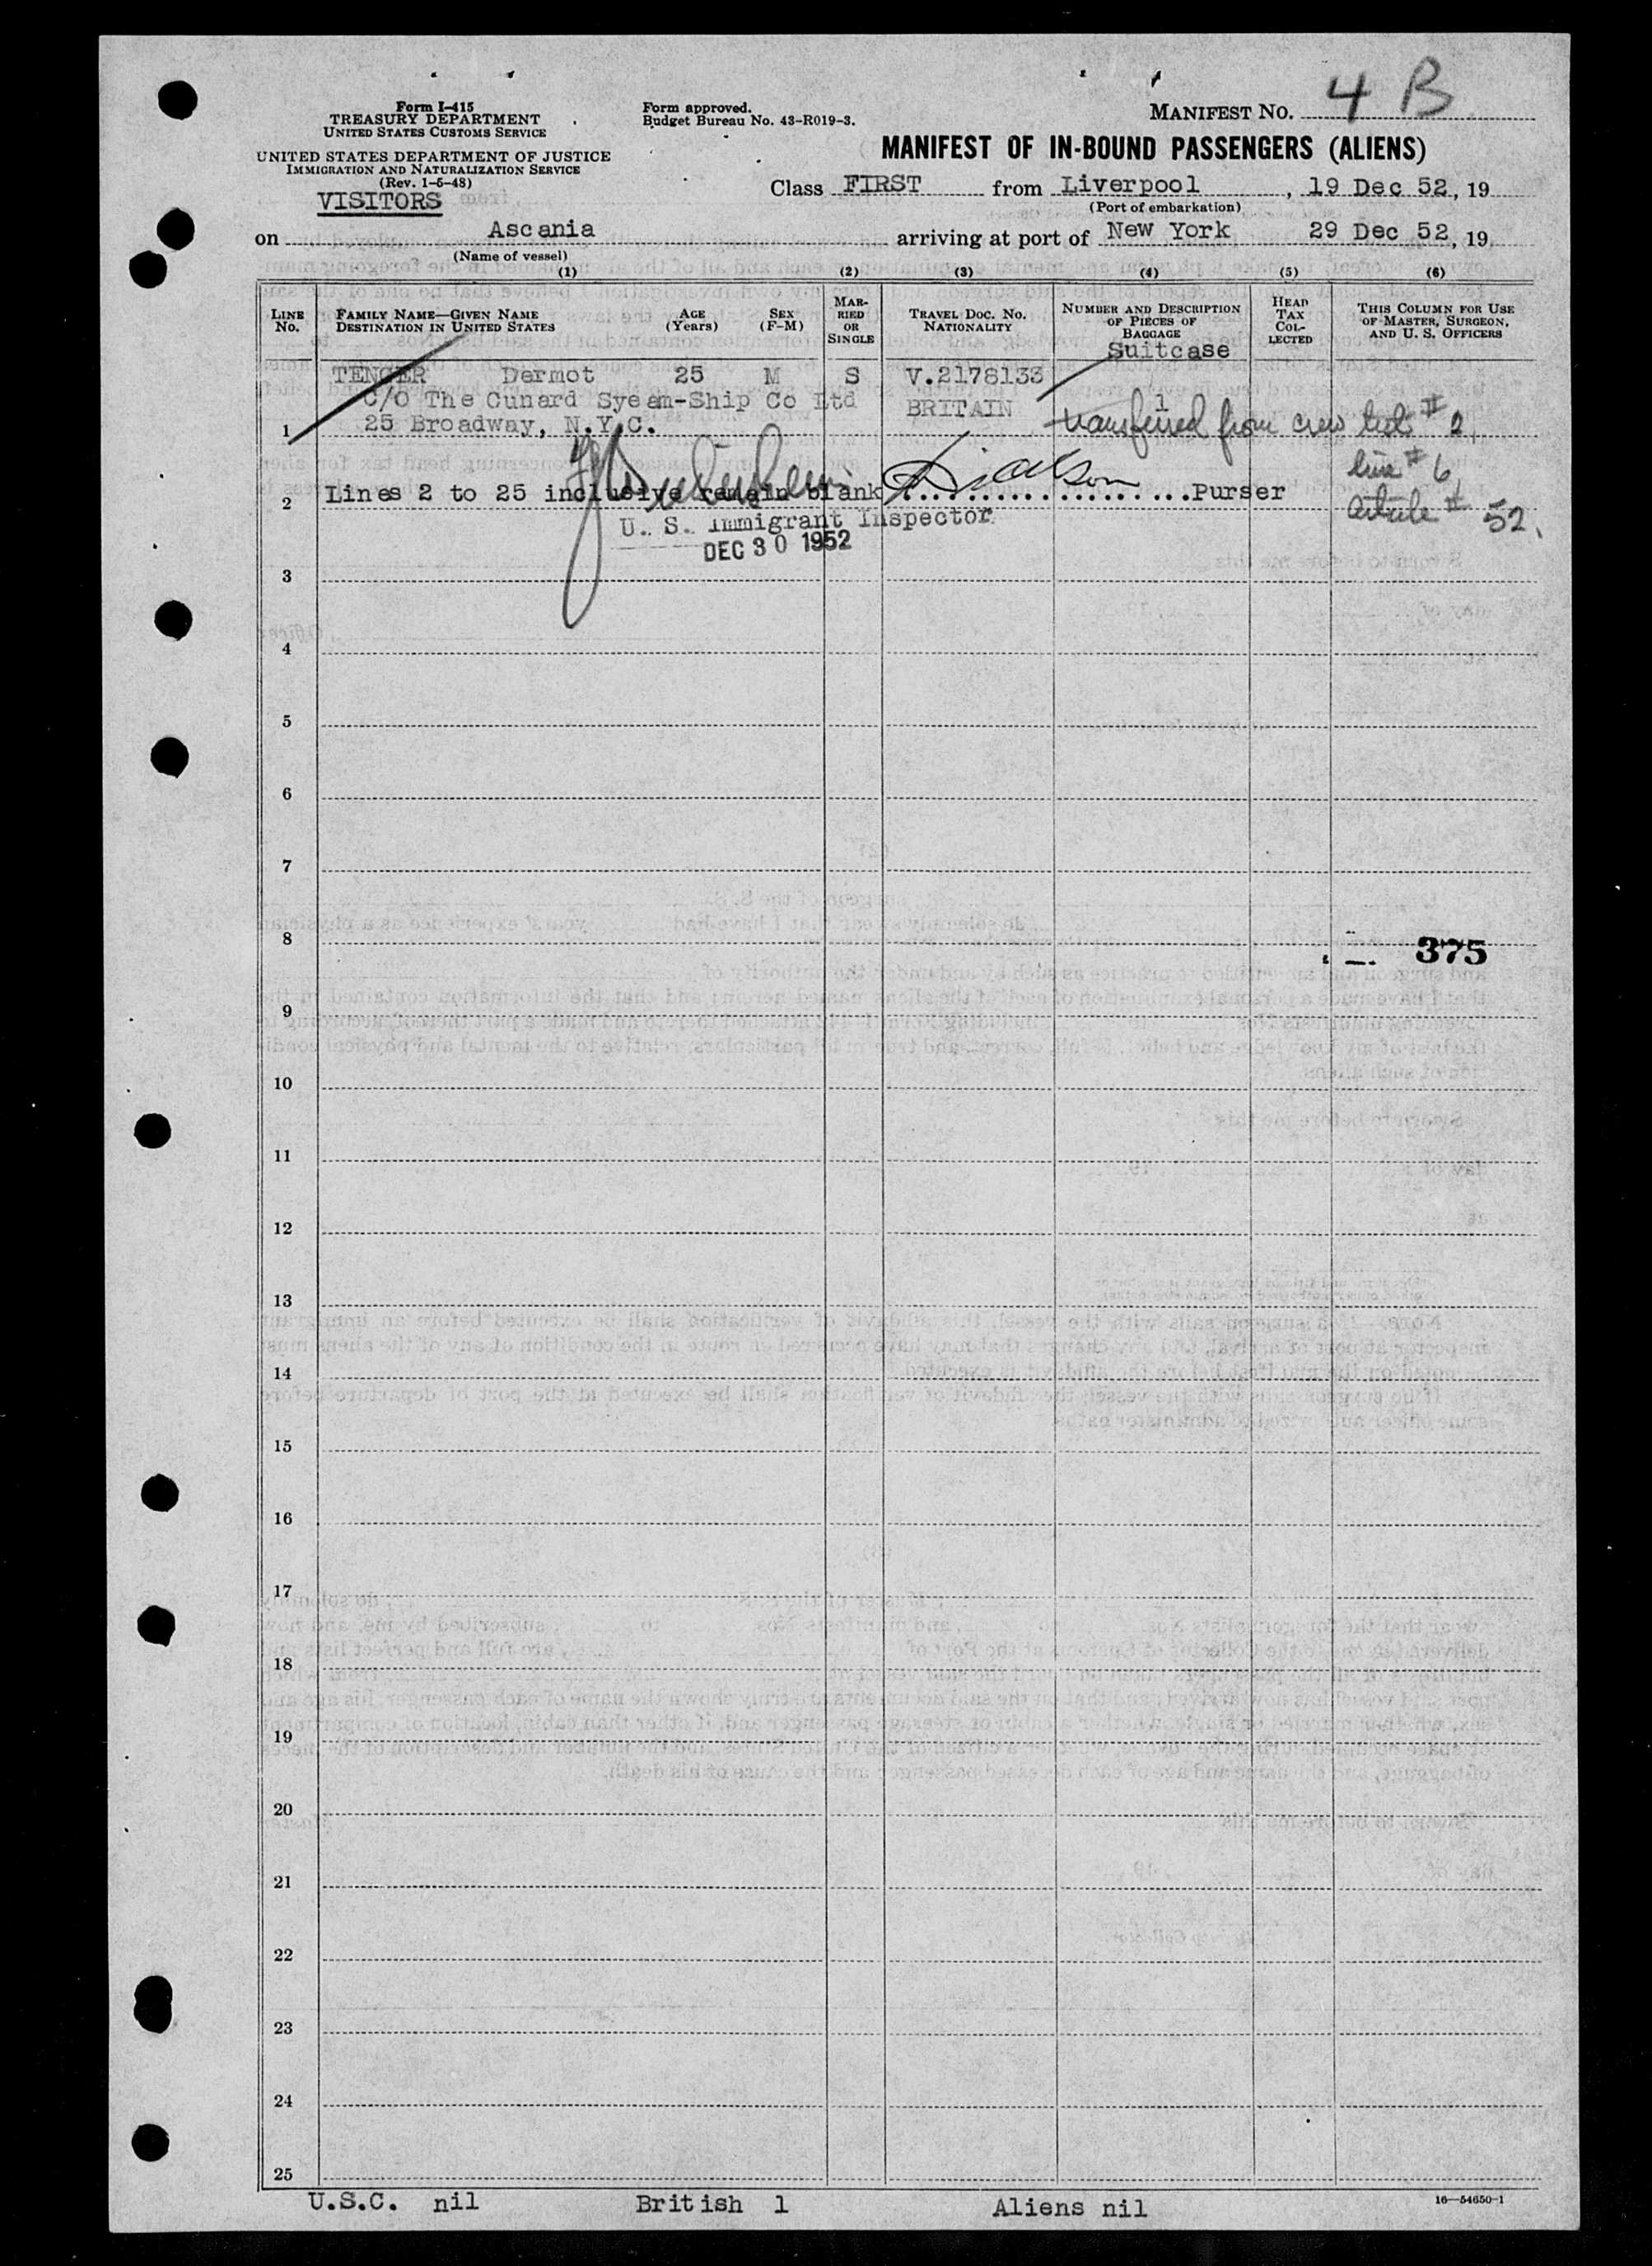 4 B
Form I-415
TREASURY DEPARTMENT
UNITED STATES CUSTOMS SERVICE
UNITED STATES DEPARTMENT OF JUSTICE
IMMIGRATION AND NATURALIZATION SERVICE
(Rev. 1-5-48)
VISITORS
Form approved.
Budget Bureau No. 43-R019-3.
MANIFEST NO.
MANIFEST OF IN-BOUND PASSENGERS (ALIENS)
Class FIRST from Liverpool, 19 Dec 52, 19
(Port of embarkation)
on Ascania arriving at port of New York 29 Dec 52, 19
(Name of vessel)
(1) (2) (3) (4) (5) (6)
LINE No.
FAMILY NAME—GIVEN NAME
DESTINATION IN UNITED STATES
AGE (Years)
SEX (F-M)
MARRIED OR SINGLE
TRAVEL DOC. NO.
NATIONALITY
NUMBER AND DESCRIPTION OF PIECES OF BAGGAGE
HEAD TAX COLLECTED
THIS COLUMN FOR USE OF MASTER, SURGEON, AND U. S. OFFICERS
Suitcase
TENGER Dermot 25 M S V.2178133
C/O The Cunard Syeam-Ship Co Ltd BRITAIN 1
1 25 Broadway, N.Y.C. transferred from crew list # 2,
line # 6,
2 Lines 2 to 25 inclusive remain blank ....................Purser
article # 52.
U. S. Immigrant Inspector
DEC 30 1952
3
4
5
6
7
8 375
9
10
11
12
13
14
15
16
17
18
19
20
21
22
23
24
25
U.S.C. nil British 1 Aliens nil
16—54650-1